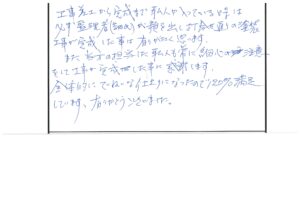 工事着工から完成まで職人が入っている時は
必ず管理者(　)が顔を出し打合せ通りの塗装
工事が完成した事は有りがたく思います。
また 各々の担当した職人も常に細心の注意
をして工事が完成した事に感謝します。
全体的にていねいな仕上りになったので120%満足
しています。有りがとうございました。